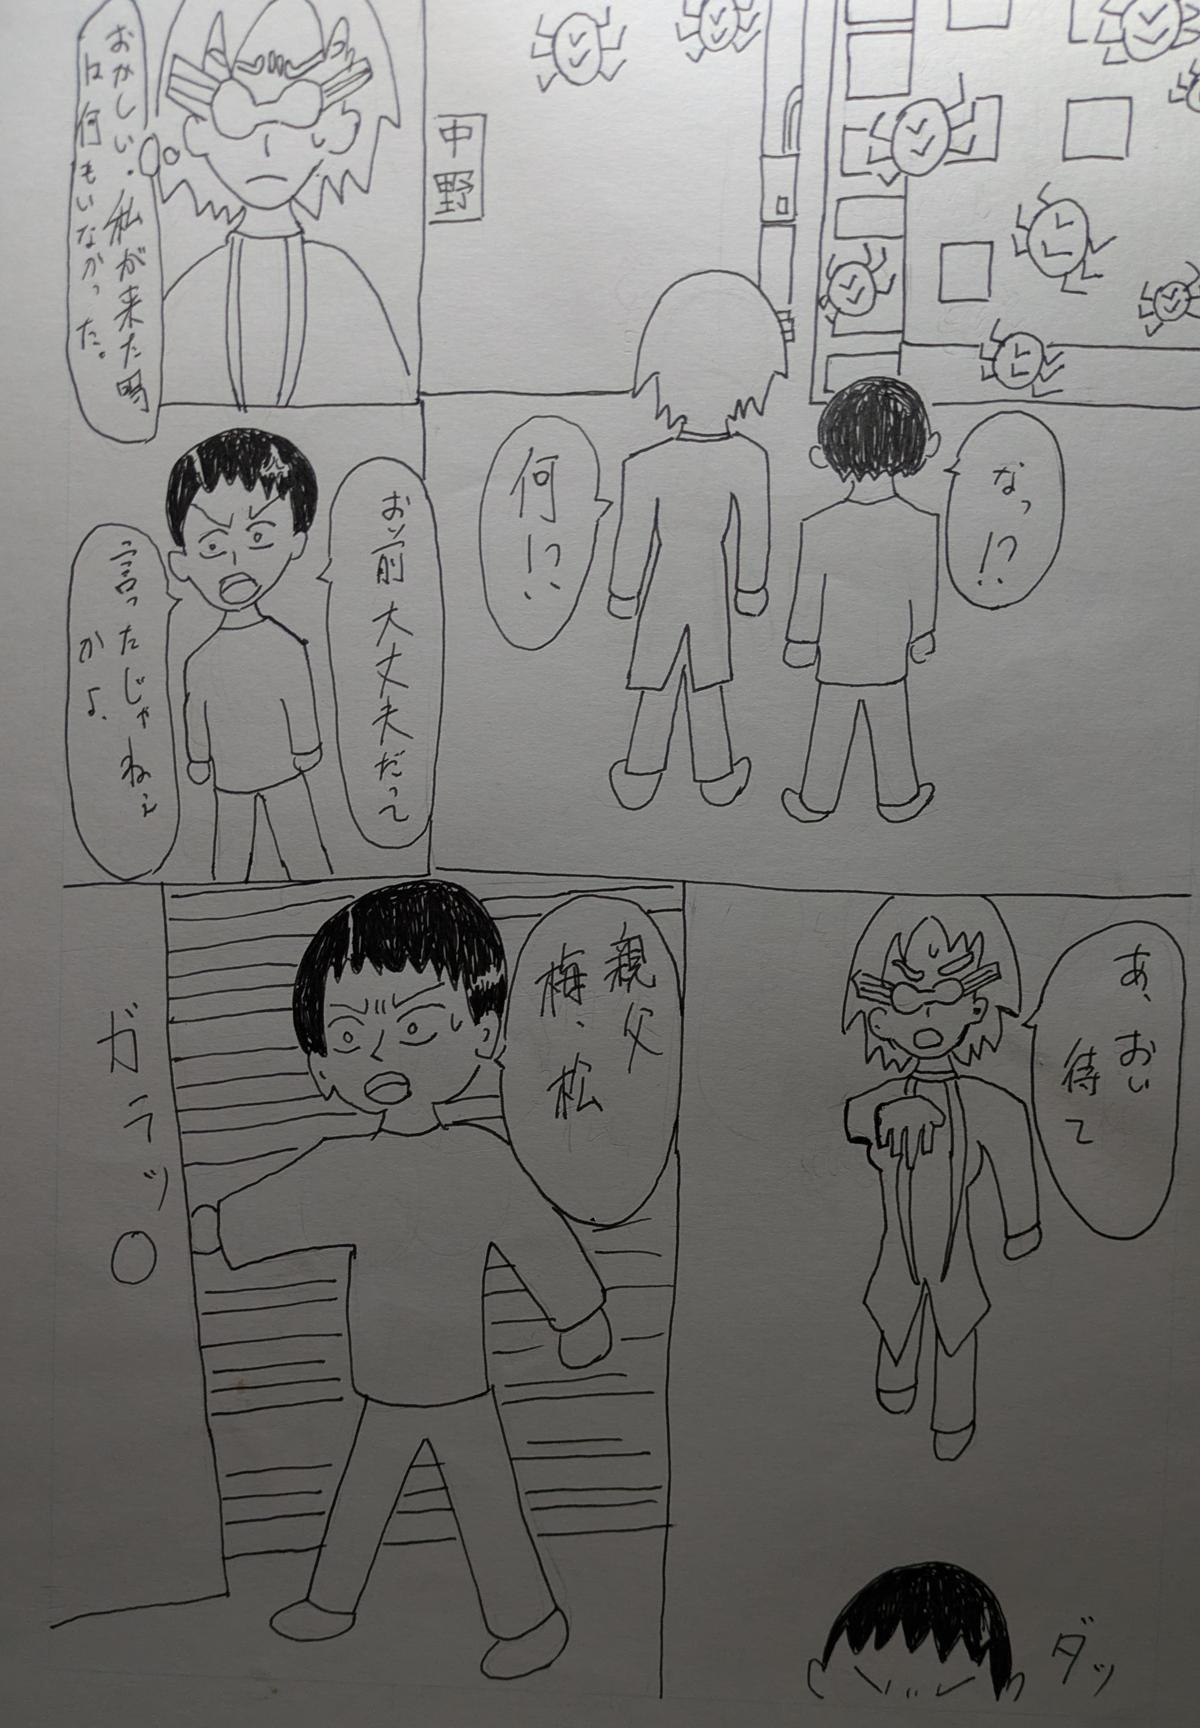 中野
なっ!?
何!?
おかしい。私が来た時
は何もいなかった。
お前大丈夫だって
言ったじゃねぇ
かよ
あ、おい
待て
ダッ
親父
梅、松
ガラッ